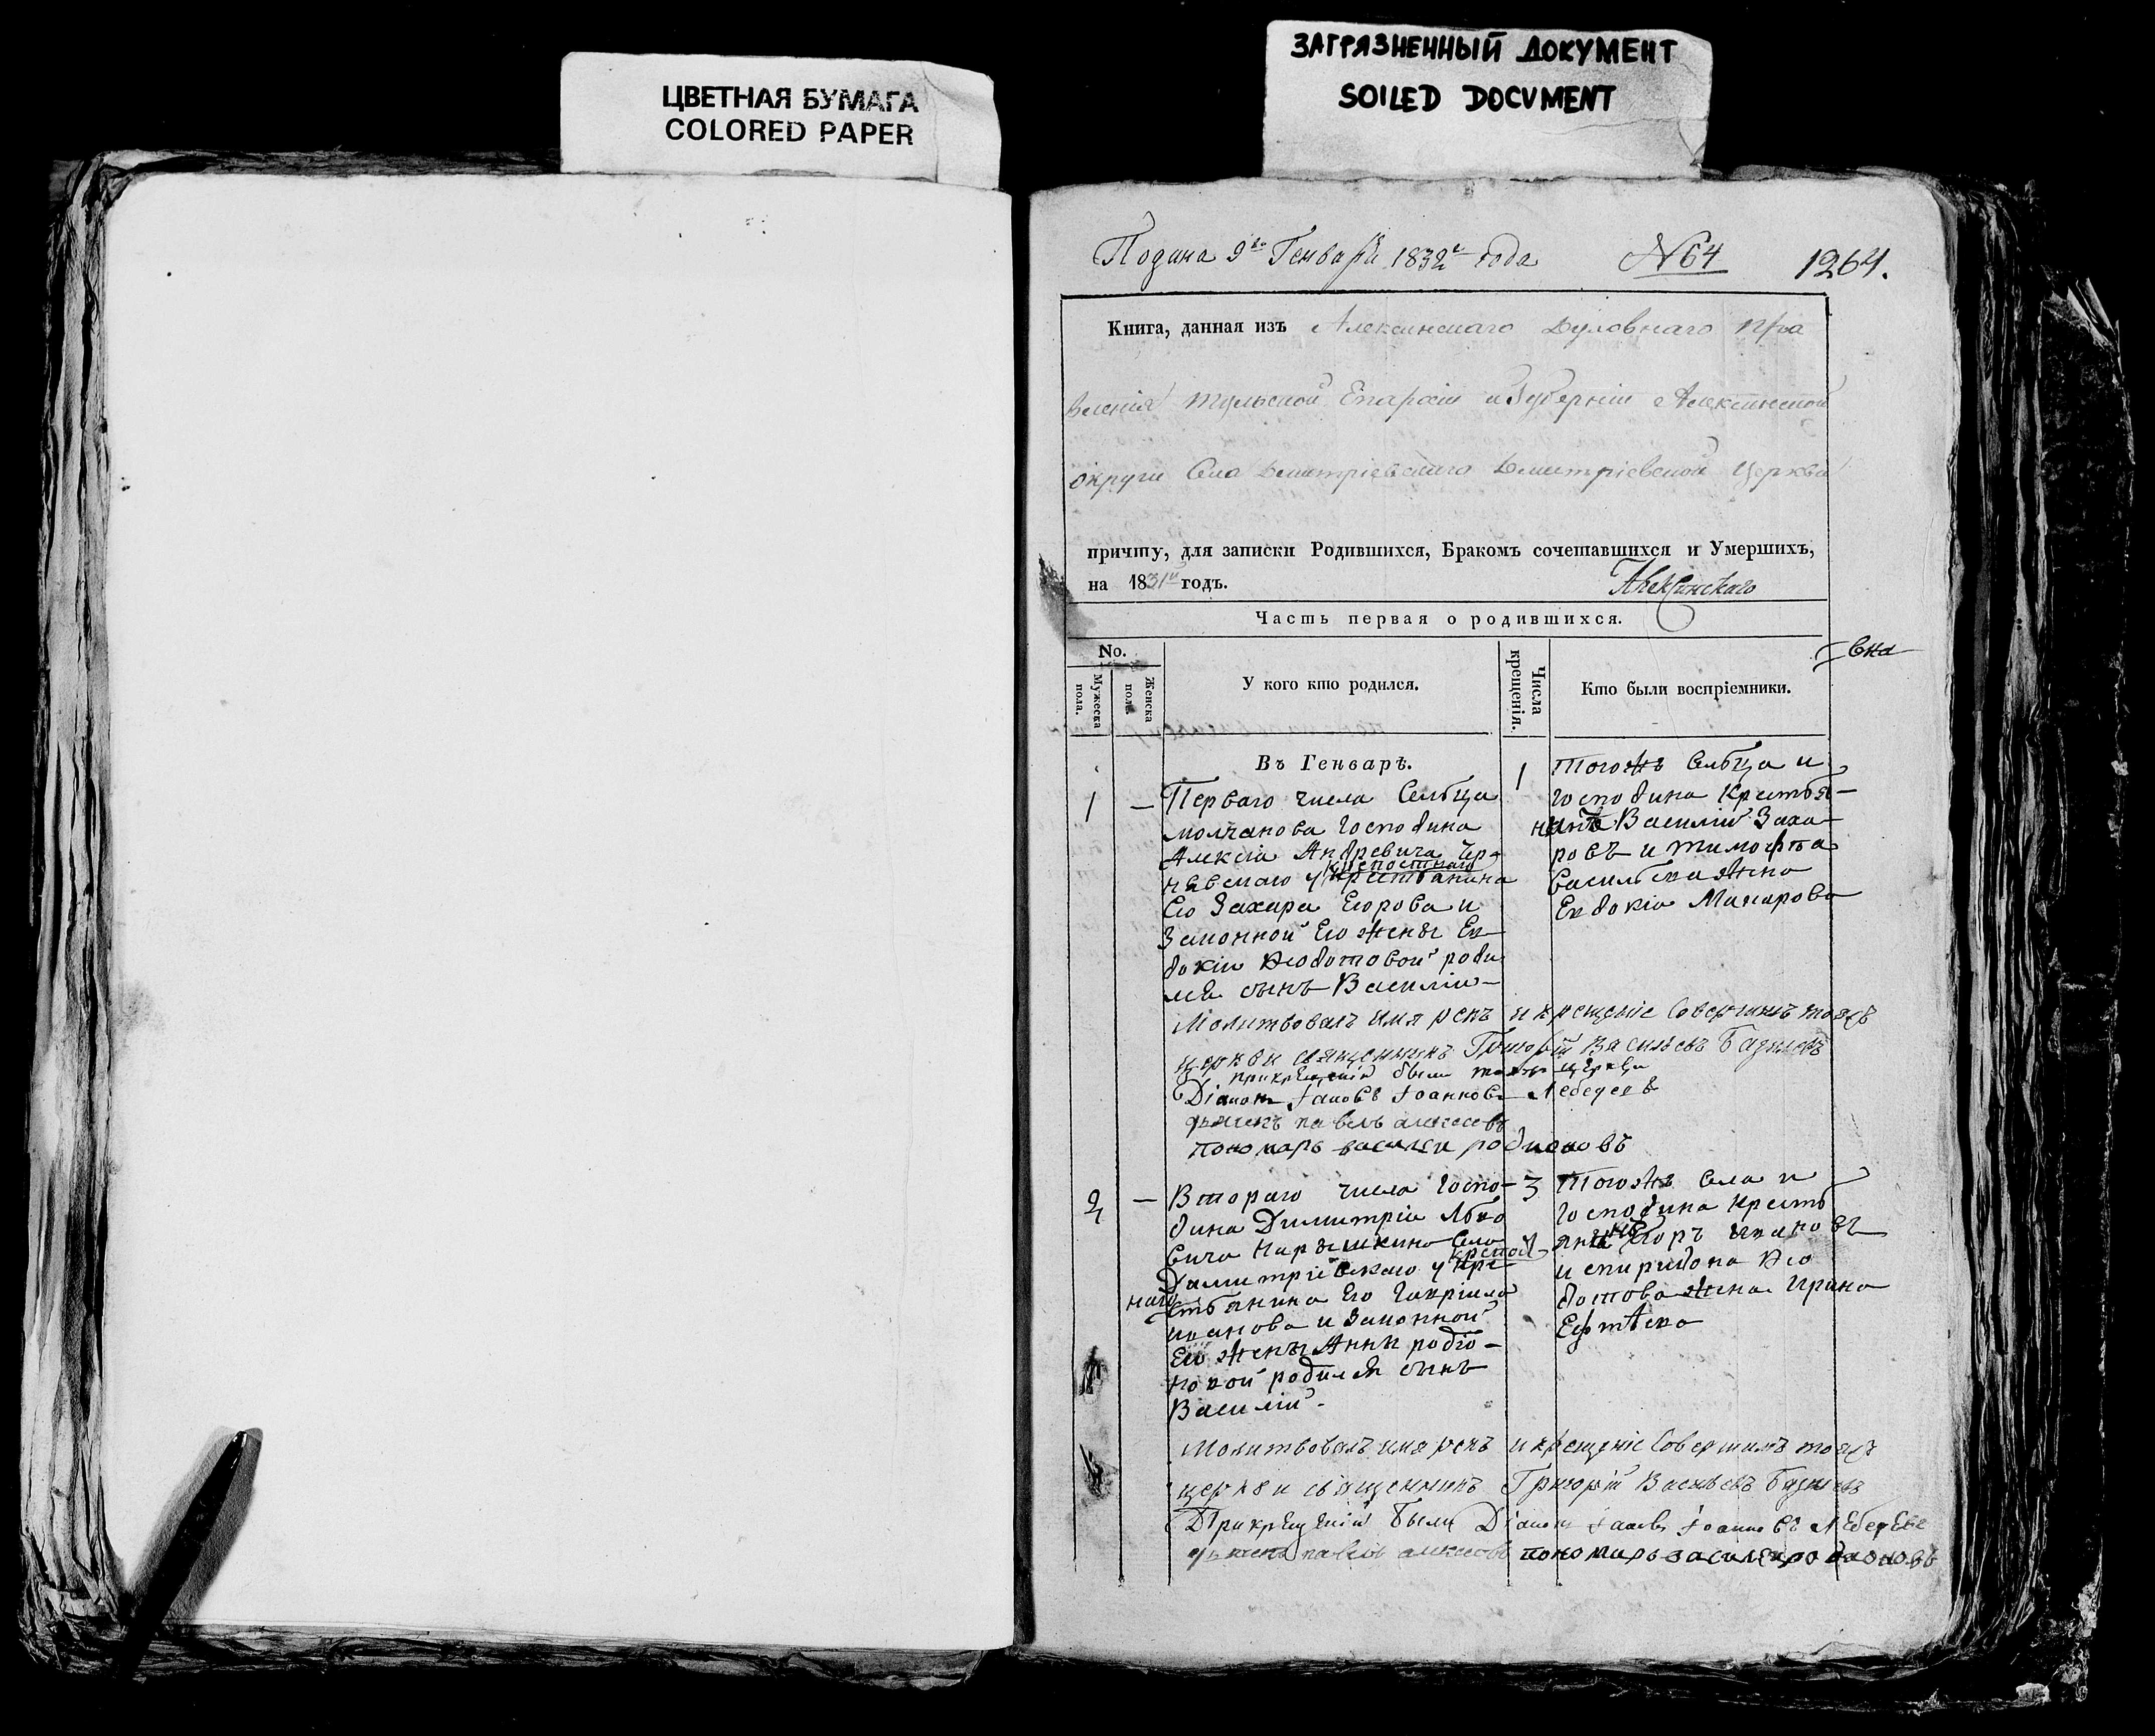 ЦВЕТНАЯ БУМАГА
COLORED PAPER
ЗАГРЯЗНЕННЫЙ ДОКУМЕНТ
SOILED DOCUMENT
Подана 9го Генваря 1832го года № 64 1264.
Книга, данная изъ Алексинскаго Духовнаго Пра
вленія Тульской Епархіи и Губерніи Алексинской
округи Села Димитріевскаго Димитріевской Церкви
причту, для записки Родившихся, Бракомъ сочетавшихся и Умершихъ,
на 1831й годъ. Алексинскаго
Часть первая о родившихся.
No.
Мужеска пола.
Женска пола.
У кого кто родился.
Числа крещенія.
Кто были воспріемники.
Въ Генварѣ.
1 — Перваго числа Сельца
молчанова Господина
Алексія Андревича
крепостнаго
у крестьянина
Его Захара Егорова и
Законной Его жены Ев
докіи Ѳедотовой роди
лся сынъ Василій
1
Тогожъ Сельца и
Господина Крестья
нинъ Василій Заха
ровъ и Тимофѣа
Васильева жена
Евдокіа Макарова
Молитвовалъ имя рекъ и крещеніе совершилъ тояжъ
церкви священникъ Григорій Васильевъ
при крещеніи были тояжъ церкви
Діаконъ Іаковъ Іоанновъ Лебедевъ
дьячекъ павелъ алексеевъ
пономарь василеи родионовъ
2 — Втораго числа Госпо
дина Димитріа Льво
вича Нарышкина Села
Димитріевскаго у крепост
наго
крестьянина Его Гавріила
иванова и Законной
Его жены Анны родіо
новой родился сынъ
Василій
3
Тогожъ Села и
Господина Кресть
янинъ Егоръ Ивановъ
и спиридона Ѳе
дотова жена Ирина
Молитвовалъ имя рекъ и крещеніе совершилъ тояжъ
церкви священникъ Григорій Васильевъ
При крещеніи были Діаконъ Іаковъ Іоанновъ Лебедевъ
дьячекъ павелъ алексеевъ пономарь василеи родионовъ